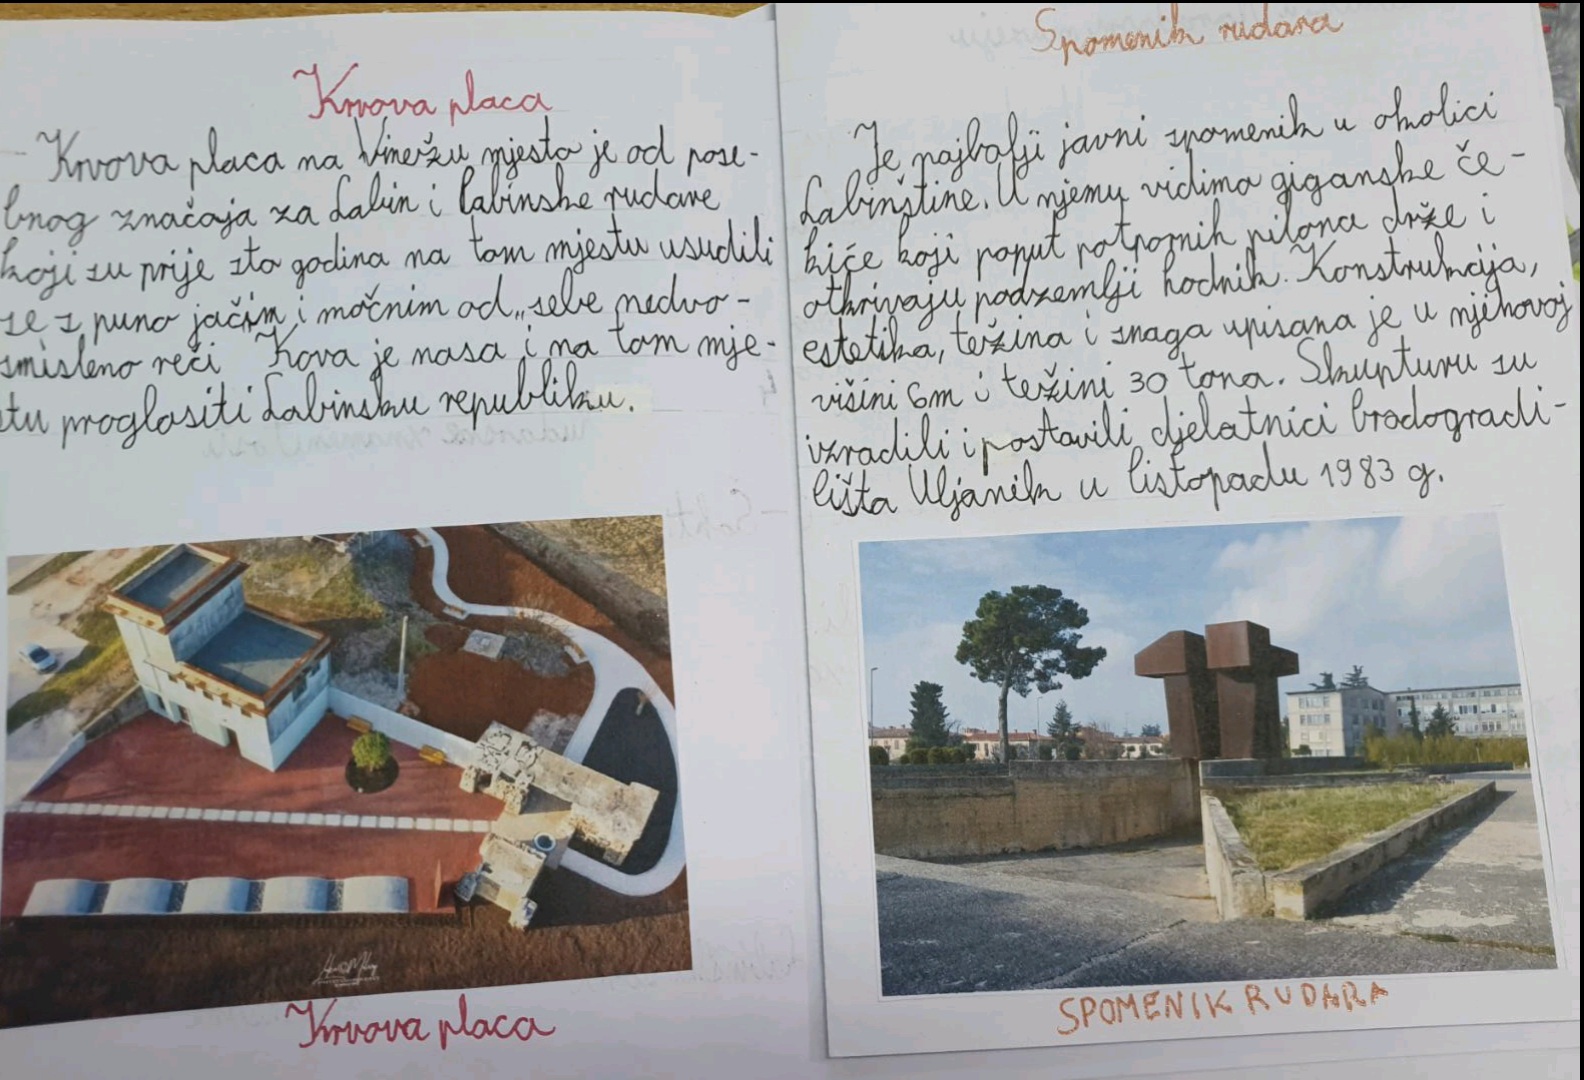 Krvova placa
Krvova placa na Vinežu mjesto je od pose-
bnog značaja za Labin i labinske rudare
koji su prije sto godina na tom mjestu usudili
se s puno jačim i močnim od „sebe nedvo-
smisleno reći Kova je nasa i na tom mje-
stu proglasiti Labinsku republiku.
Krvova placa
Spomenik rudara
Je najbolji javni spomenik u okolici
Labinštine. U njemu vidimo giganske če-
kiće koji poput potpornih pilona drže i
otkrivaju podzemlji hodnik. Konstrukcija,
estetika, težina i snaga upisana je u njihovoj
višini 6m i težini 30 tona. Skupturu su
izradili i postavili djelatnici brodogradi-
lišta Uljanik u listopadu 1983 g.
SPOMENIK RUDARA